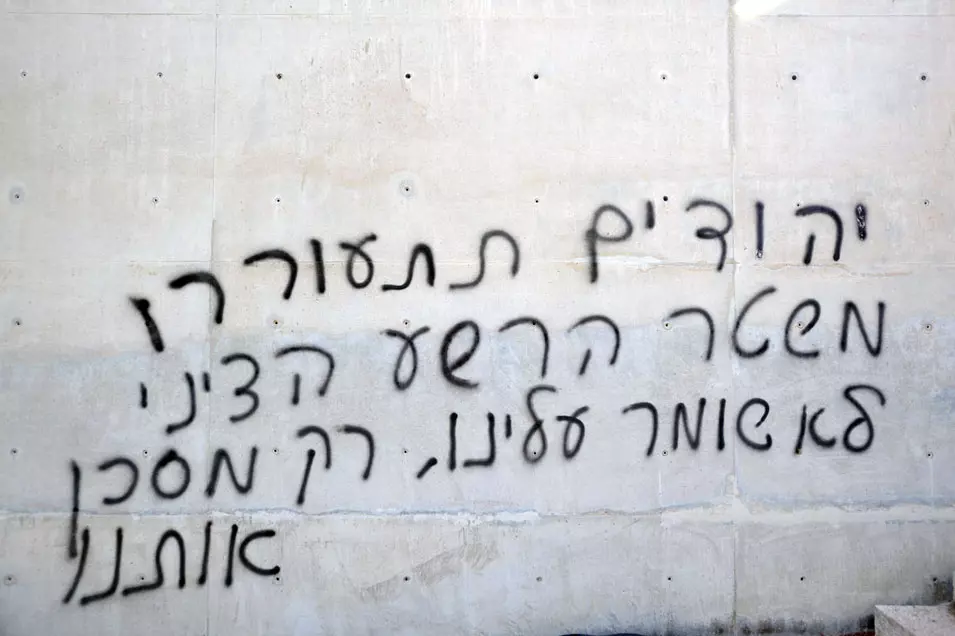 יהודים תתעוררו
משטר הרשע הציני
לא שומר עלינו, רק מסכן
אותנו